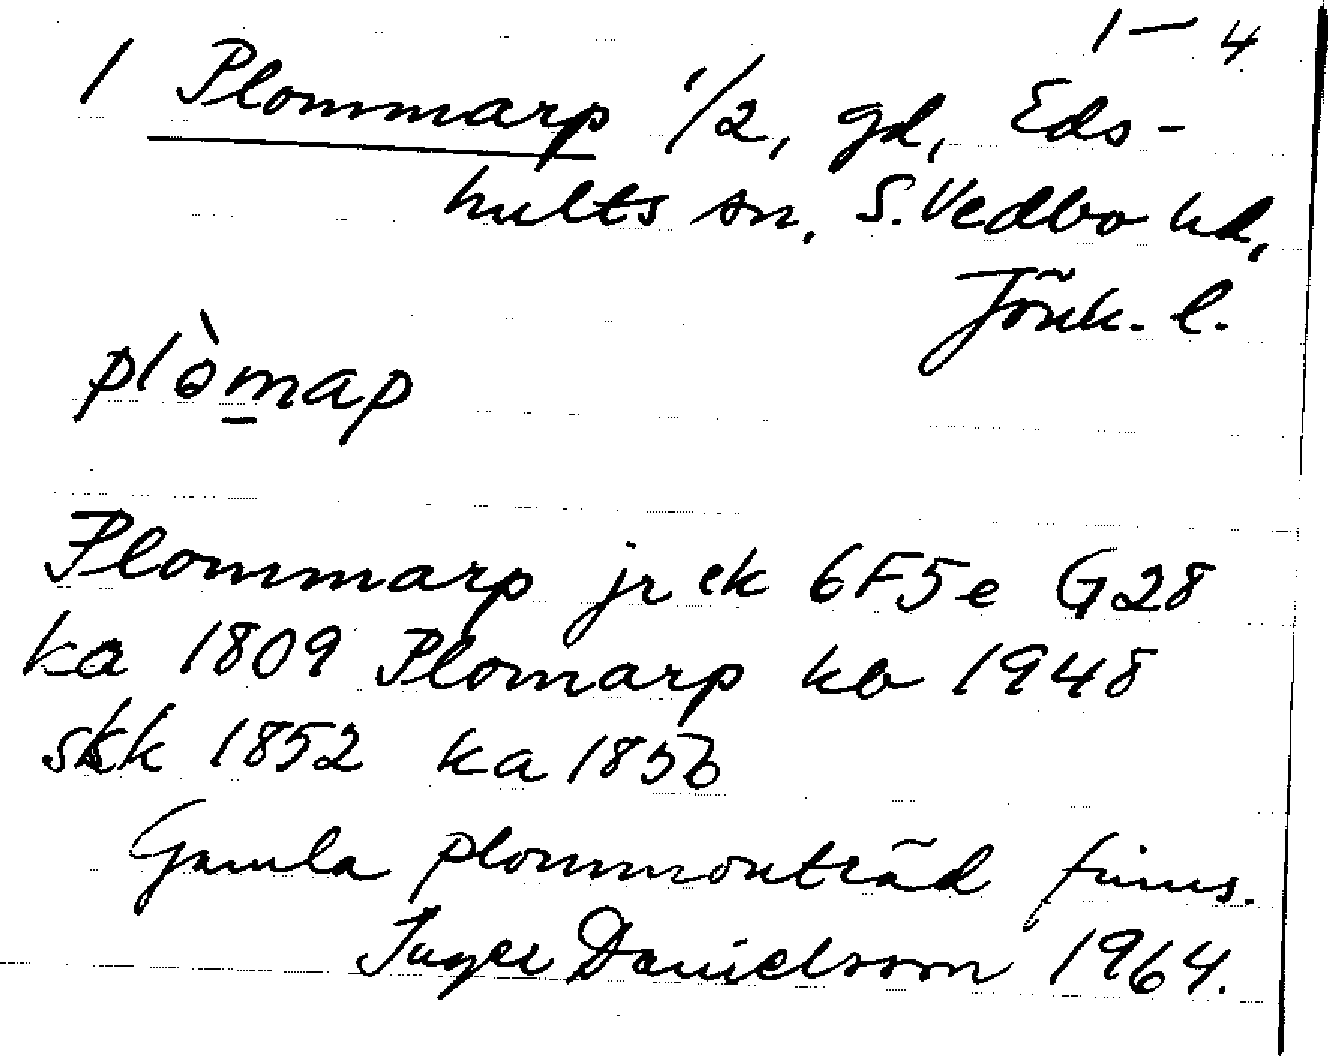 1-4
1 Plommarp 1/2, gd, Eds-
hults sn, S. Vedbo hd,
Jönk. l.
plòmap
Plommarp jr ek 6F5e G28
ka 1809 Plomarp kb 1948
skk 1852 ka 1856
Gamla plommonträd finns.
Inger Danielsson 1964.